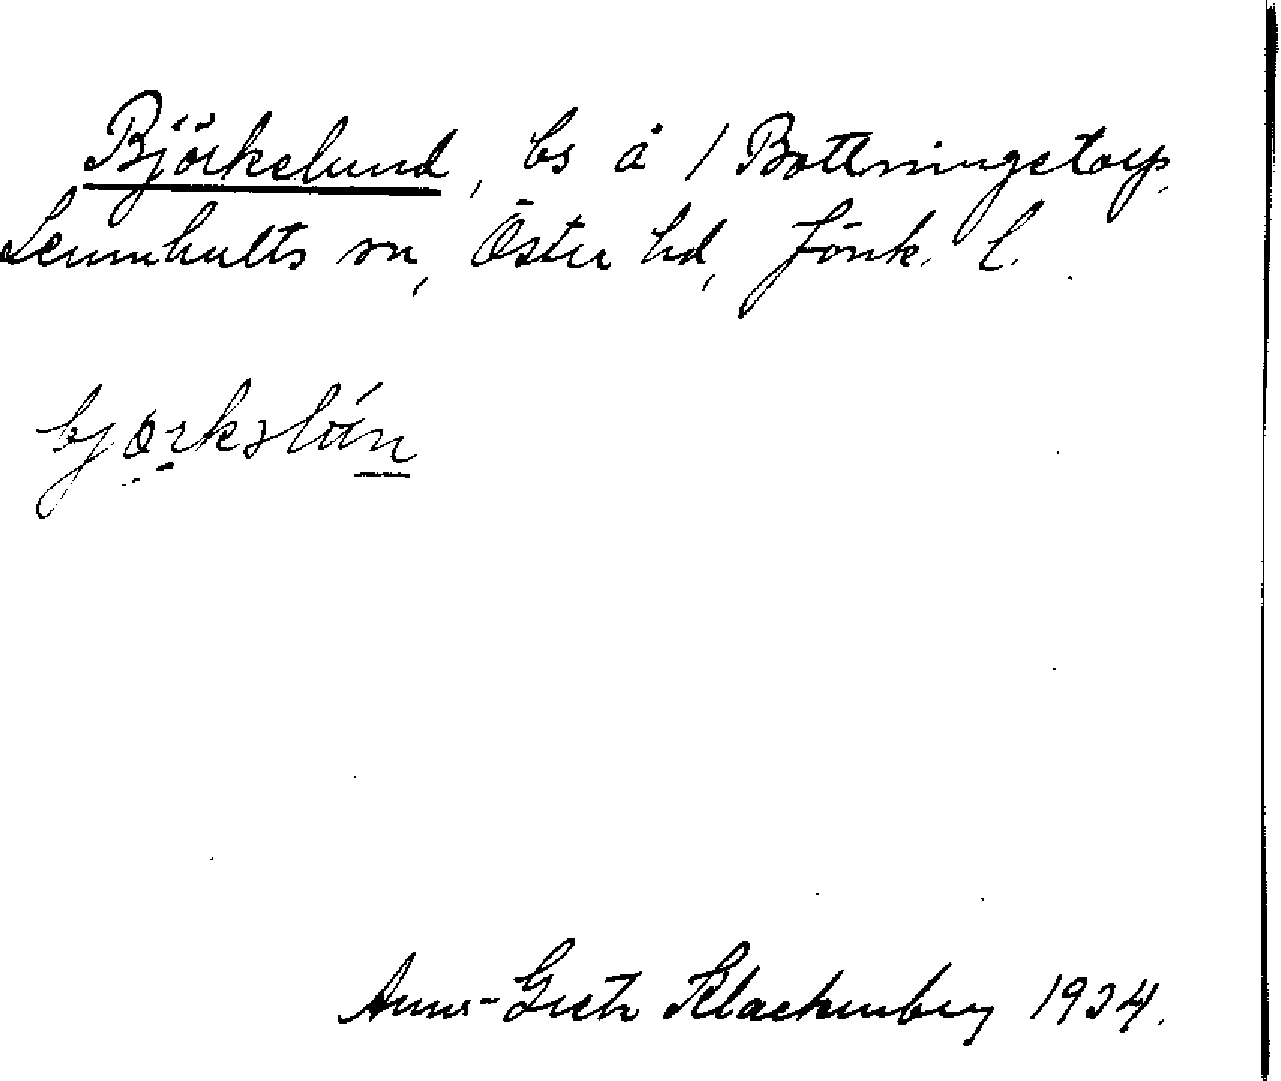 Björkelund, bs å / Bottningstorp,
Lemnhults sn, Öster hd, Jönk. l.
bjorkslún
Anna-Greta Klackenberg 1934.